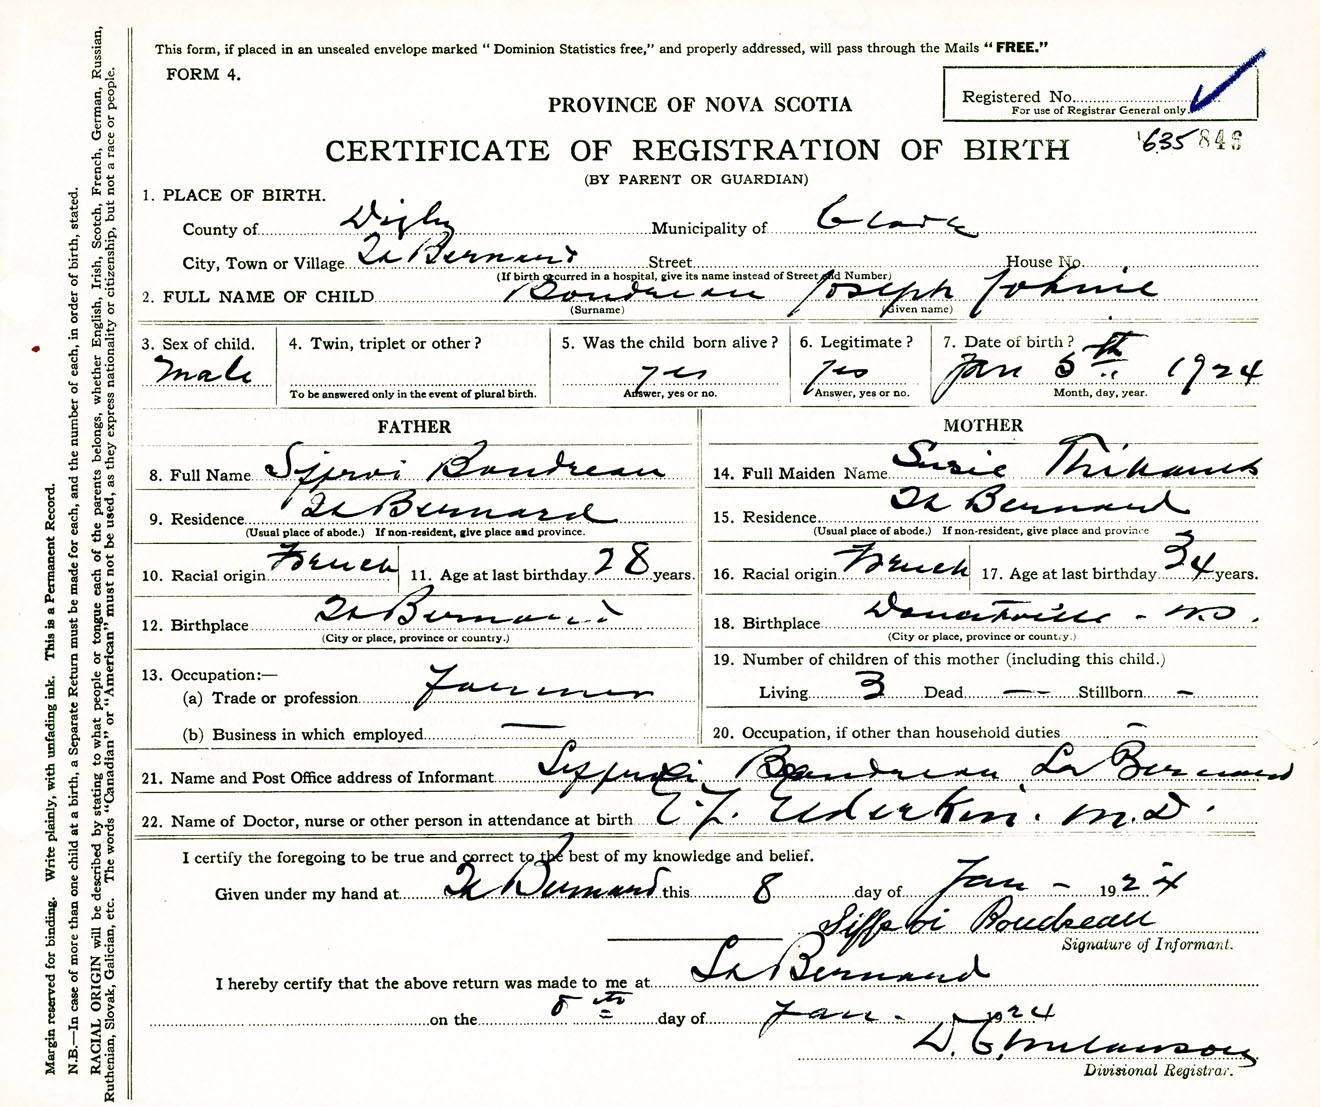 This form, if placed in an unsealed envelope marked “ Dominion Statistics free,” and properly addressed, will pass through the Mails “ FREE.”
FORM 4.
Registered No.
For use of Registrar General only.
PROVINCE OF NOVA SCOTIA
635 846
CERTIFICATE OF REGISTRATION OF BIRTH
(BY PARENT OR GUARDIAN)
1. PLACE OF BIRTH.
County of Digby Municipality of Clare
City, Town or Village St Bernard Street House No.
(If birth occurred in a hospital, give its name instead of Street and Number)
2. FULL NAME OF CHILD Boudreau Joseph Johnie
(Surname) (Given name)
3. Sex of child. 4. Twin, triplet or other ? 5. Was the child born alive ? 6. Legitimate ? 7. Date of birth ?
male yes yes Jan 5th 1924
To be answered only in the event of plural birth. Answer, yes or no. Answer, yes or no. Month, day, year.
FATHER MOTHER
8. Full Name Boudreau 14. Full Maiden Name Susie
9. Residence St Bernard 15. Residence St Bernard
(Usual place of abode.) If non-resident, give place and province. (Usual place of abode.) If non-resident, give place and province
10. Racial origin French 11. Age at last birthday 28 years. 16. Racial origin French 17. Age at last birthday 34 years.
12. Birthplace St Bernard 18. Birthplace
(City or place, province or country.) (City or place, province or country.)
13. Occupation:— 19. Number of children of this mother (including this child.)
(a) Trade or profession Farmer Living 3 Dead — Stillborn –
(b) Business in which employed — 20. Occupation, if other than household duties –
21. Name and Post Office address of Informant Boudreau St Bernard
22. Name of Doctor, nurse or other person in attendance at birth Elderkin. M.D.
I certify the foregoing to be true and correct to the best of my knowledge and belief.
Given under my hand at St Bernard this 8 day of Jan – 1924
Siffroi Boudreau
Signature of Informant.
I hereby certify that the above return was made to me at St Bernard
on the 8th day of Jan. 1924
Divisional Registrar.
Margin reserved for binding. Write plainly, with unfading ink. This is a Permanent Record.
N.B.—In case of more than one child at a birth, a Separate Return must be made for each, and the number of each, in order of birth, stated.
RACIAL ORIGIN will be described by stating to what people or tongue each of the parents belongs, whether English, Irish, Scotch, French, German, Russian,
Ruthenian, Slovak, Galician, etc. The words “Canadian” or “American” must not be used, as they express nationality or citizenship, but not a race or people.